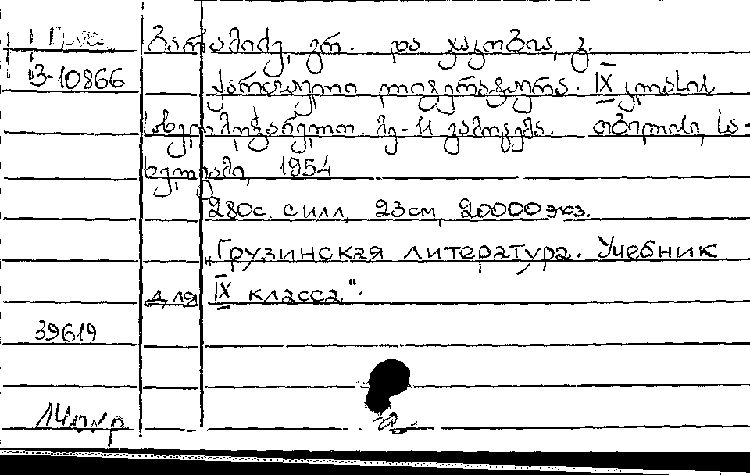 ბარამიძე, გრ. და ჯაკობია, გ.
3-10866
ქართული ლიტერატურა. IX კლასის
სახელმძღვანელო. მე-11 გამოცემა. თბილისი, სა-
ხელგამი, 1954
280с. с илл, 23см, 20000 экз.
„Грузинская литература. Учебник
для IX класса".
39619